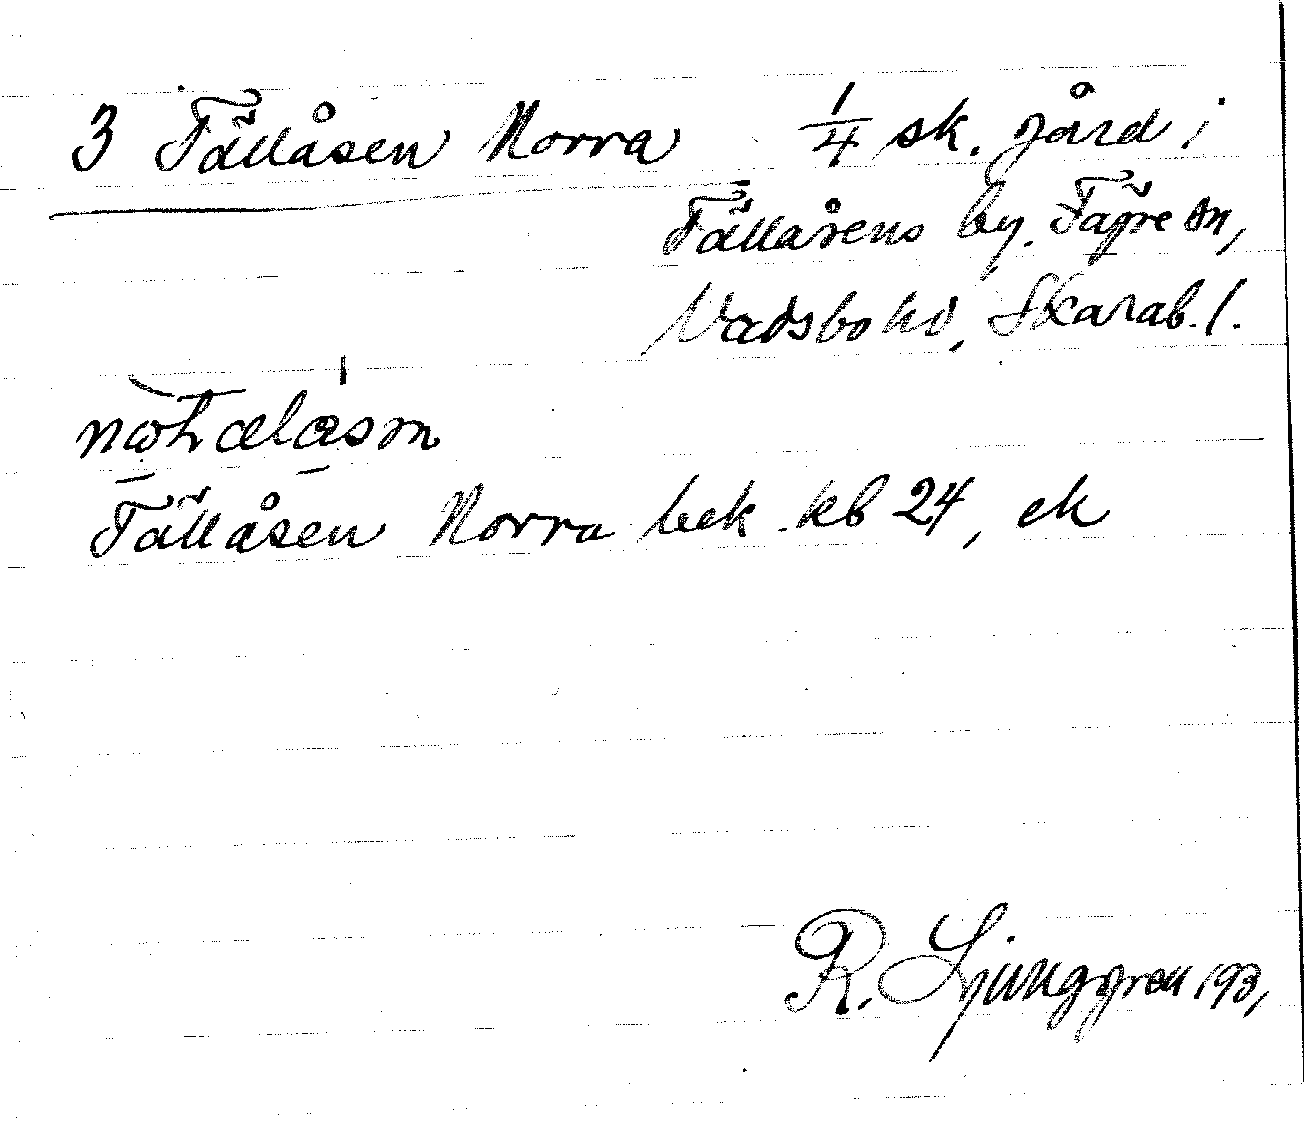 3 Fällåsen Norra 1/4 sk. gård i
Fällåsens by. Fägre sn,
Vadsbo hd, Skarab. l.
Fällåsen Norra bek. kb 24, ek
R. Ljunggren 193,